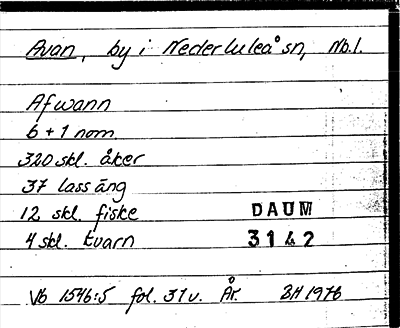 Avan, by i Nederluleå sn, Nb.l.
Afwann
6 + 1 nom
320 skl. åker
37 lass äng
12 skl. fiske
DAUM
4 skl. kvarn
3142
Vb 1546:5 fol. 31v. År. BH 1976